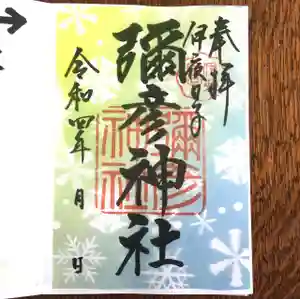 奉拝
伊夜日子
彌彦神社
令和四年 月 日
彌彦
神社